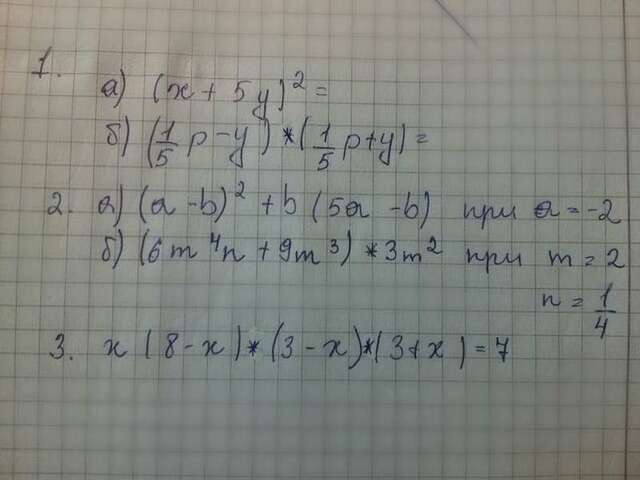 1.
а) (x + 5y)² =
б) (1/5 p - y) * (1/5 p + y) =
2. а) (a - b)² + b (5a - b) при a = -2
б) (6m⁴n + 9m³) * 3m² при m = 2
n = 1/4
3. x (8 - x) * (3 - x) * (3 + x) = 7